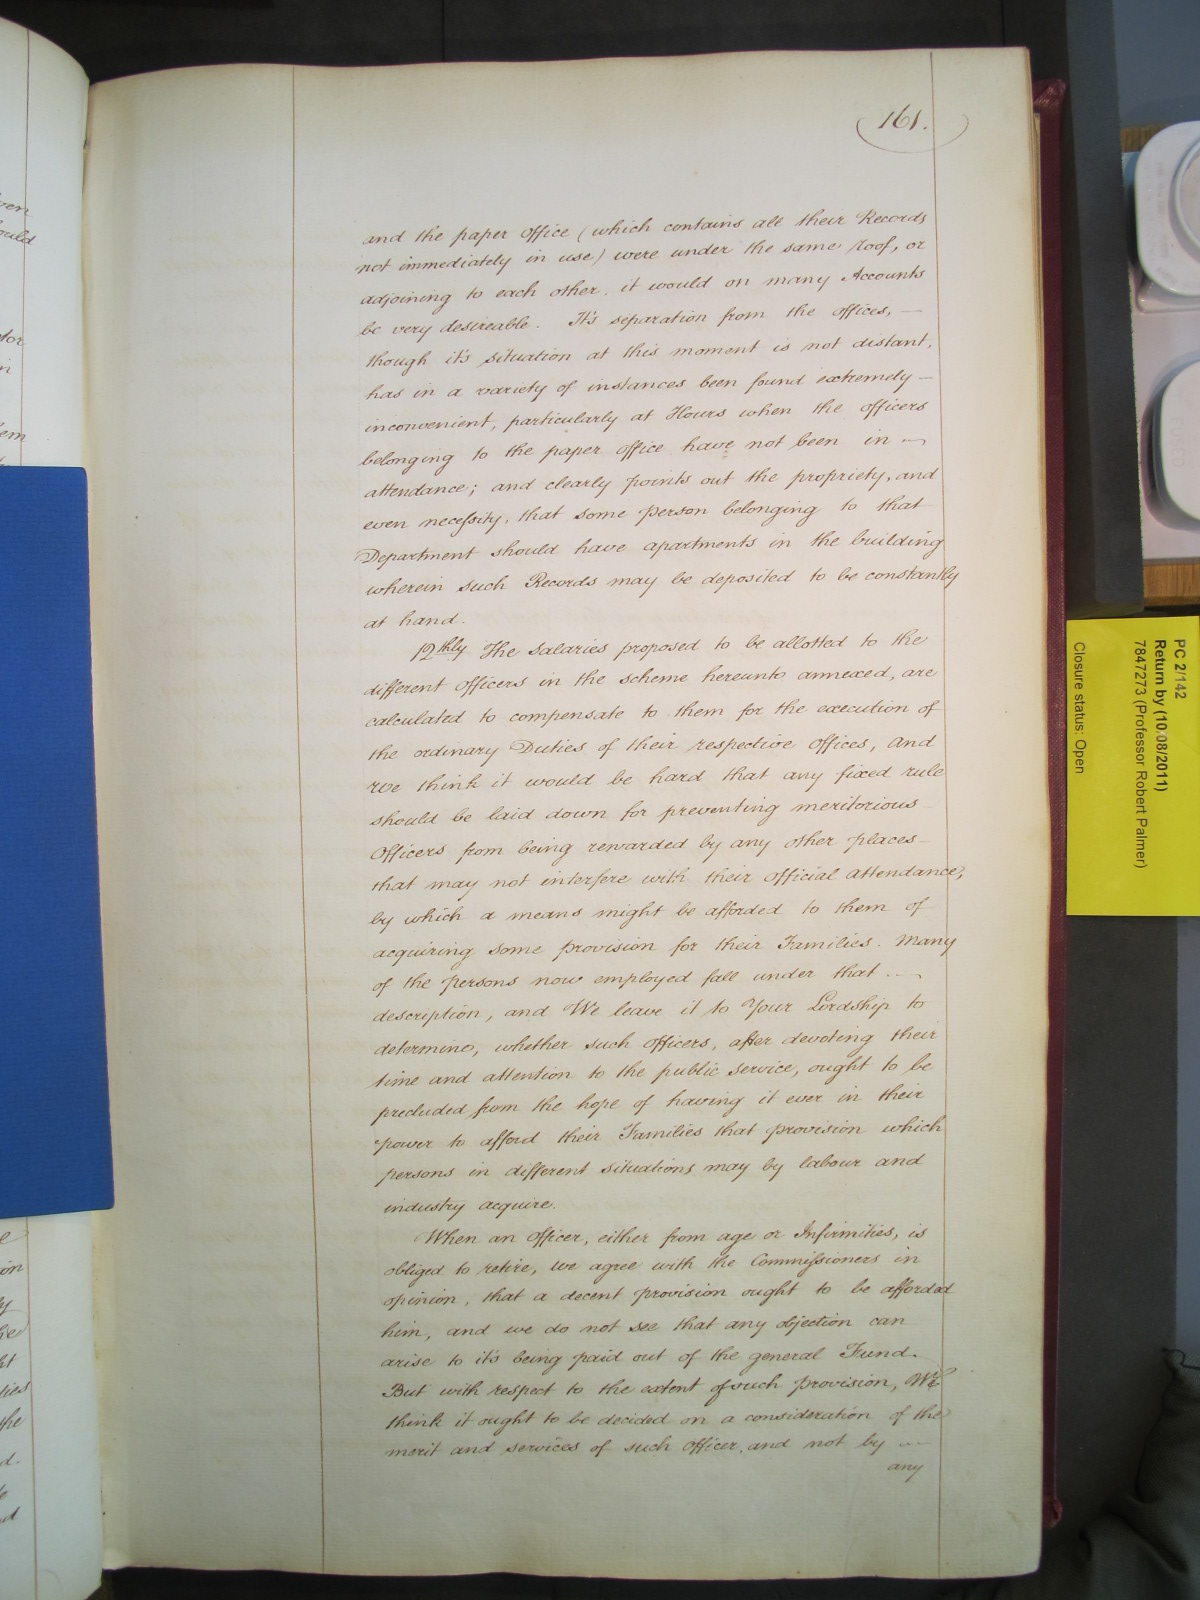 161.
and the paper office (which contains all their Records
not immediately in use) were under the same roof, or
adjoining to each other. it would on many Accounts
be very desireable. It's separation from the offices, —
though it's situation at this moment is not distant,
has in a variety of instances been found extremely —
inconvenient, particularly at Hours when the officers
belonging to the paper office have not been in —
attendance; and clearly points out the propriety, and
even necessity, that some person belonging to that
Department should have apartments in the building
wherein such Records may be deposited to be constantly
at hand.
12thly The Salaries proposed to be allotted to the
different Officers in the scheme hereunto annexed, are
calculated to compensate to them for the execution of
the ordinary Duties of their respective Offices, And
We think it would be hard that any fixed rule
should be laid down for preventing meritorious
Officers from being rewarded by any other places —
that may not interfere with their official attendance,
by which a means might be afforded to them of
acquiring some provision for their Families. Many
of the persons now employed fall under that —
description, and We leave it to Your Lordship to
determine, whether such officers, after devoting their
time and attention to the public Service, ought to be
precluded from the hope of having it ever in their
power to afford their Families that provision which
persons in different situations may by labour and
industry acquire.
When an Officer, either from age or Infirmities, is
obliged to retire, we agree with the Commissioners in
opinion, that a decent provision ought to be afforded
him, and we do not see that any objection can
arise to it's being paid out of the general Fund.
But with respect to the extent of such provision, We
think it ought to be decided on a consideration of the
merit and services of such Officer, and not by —
any
PC 2/142
Return by (10/08/2011)
7847273 (Professor Robert Palmer)
Closure status: Open